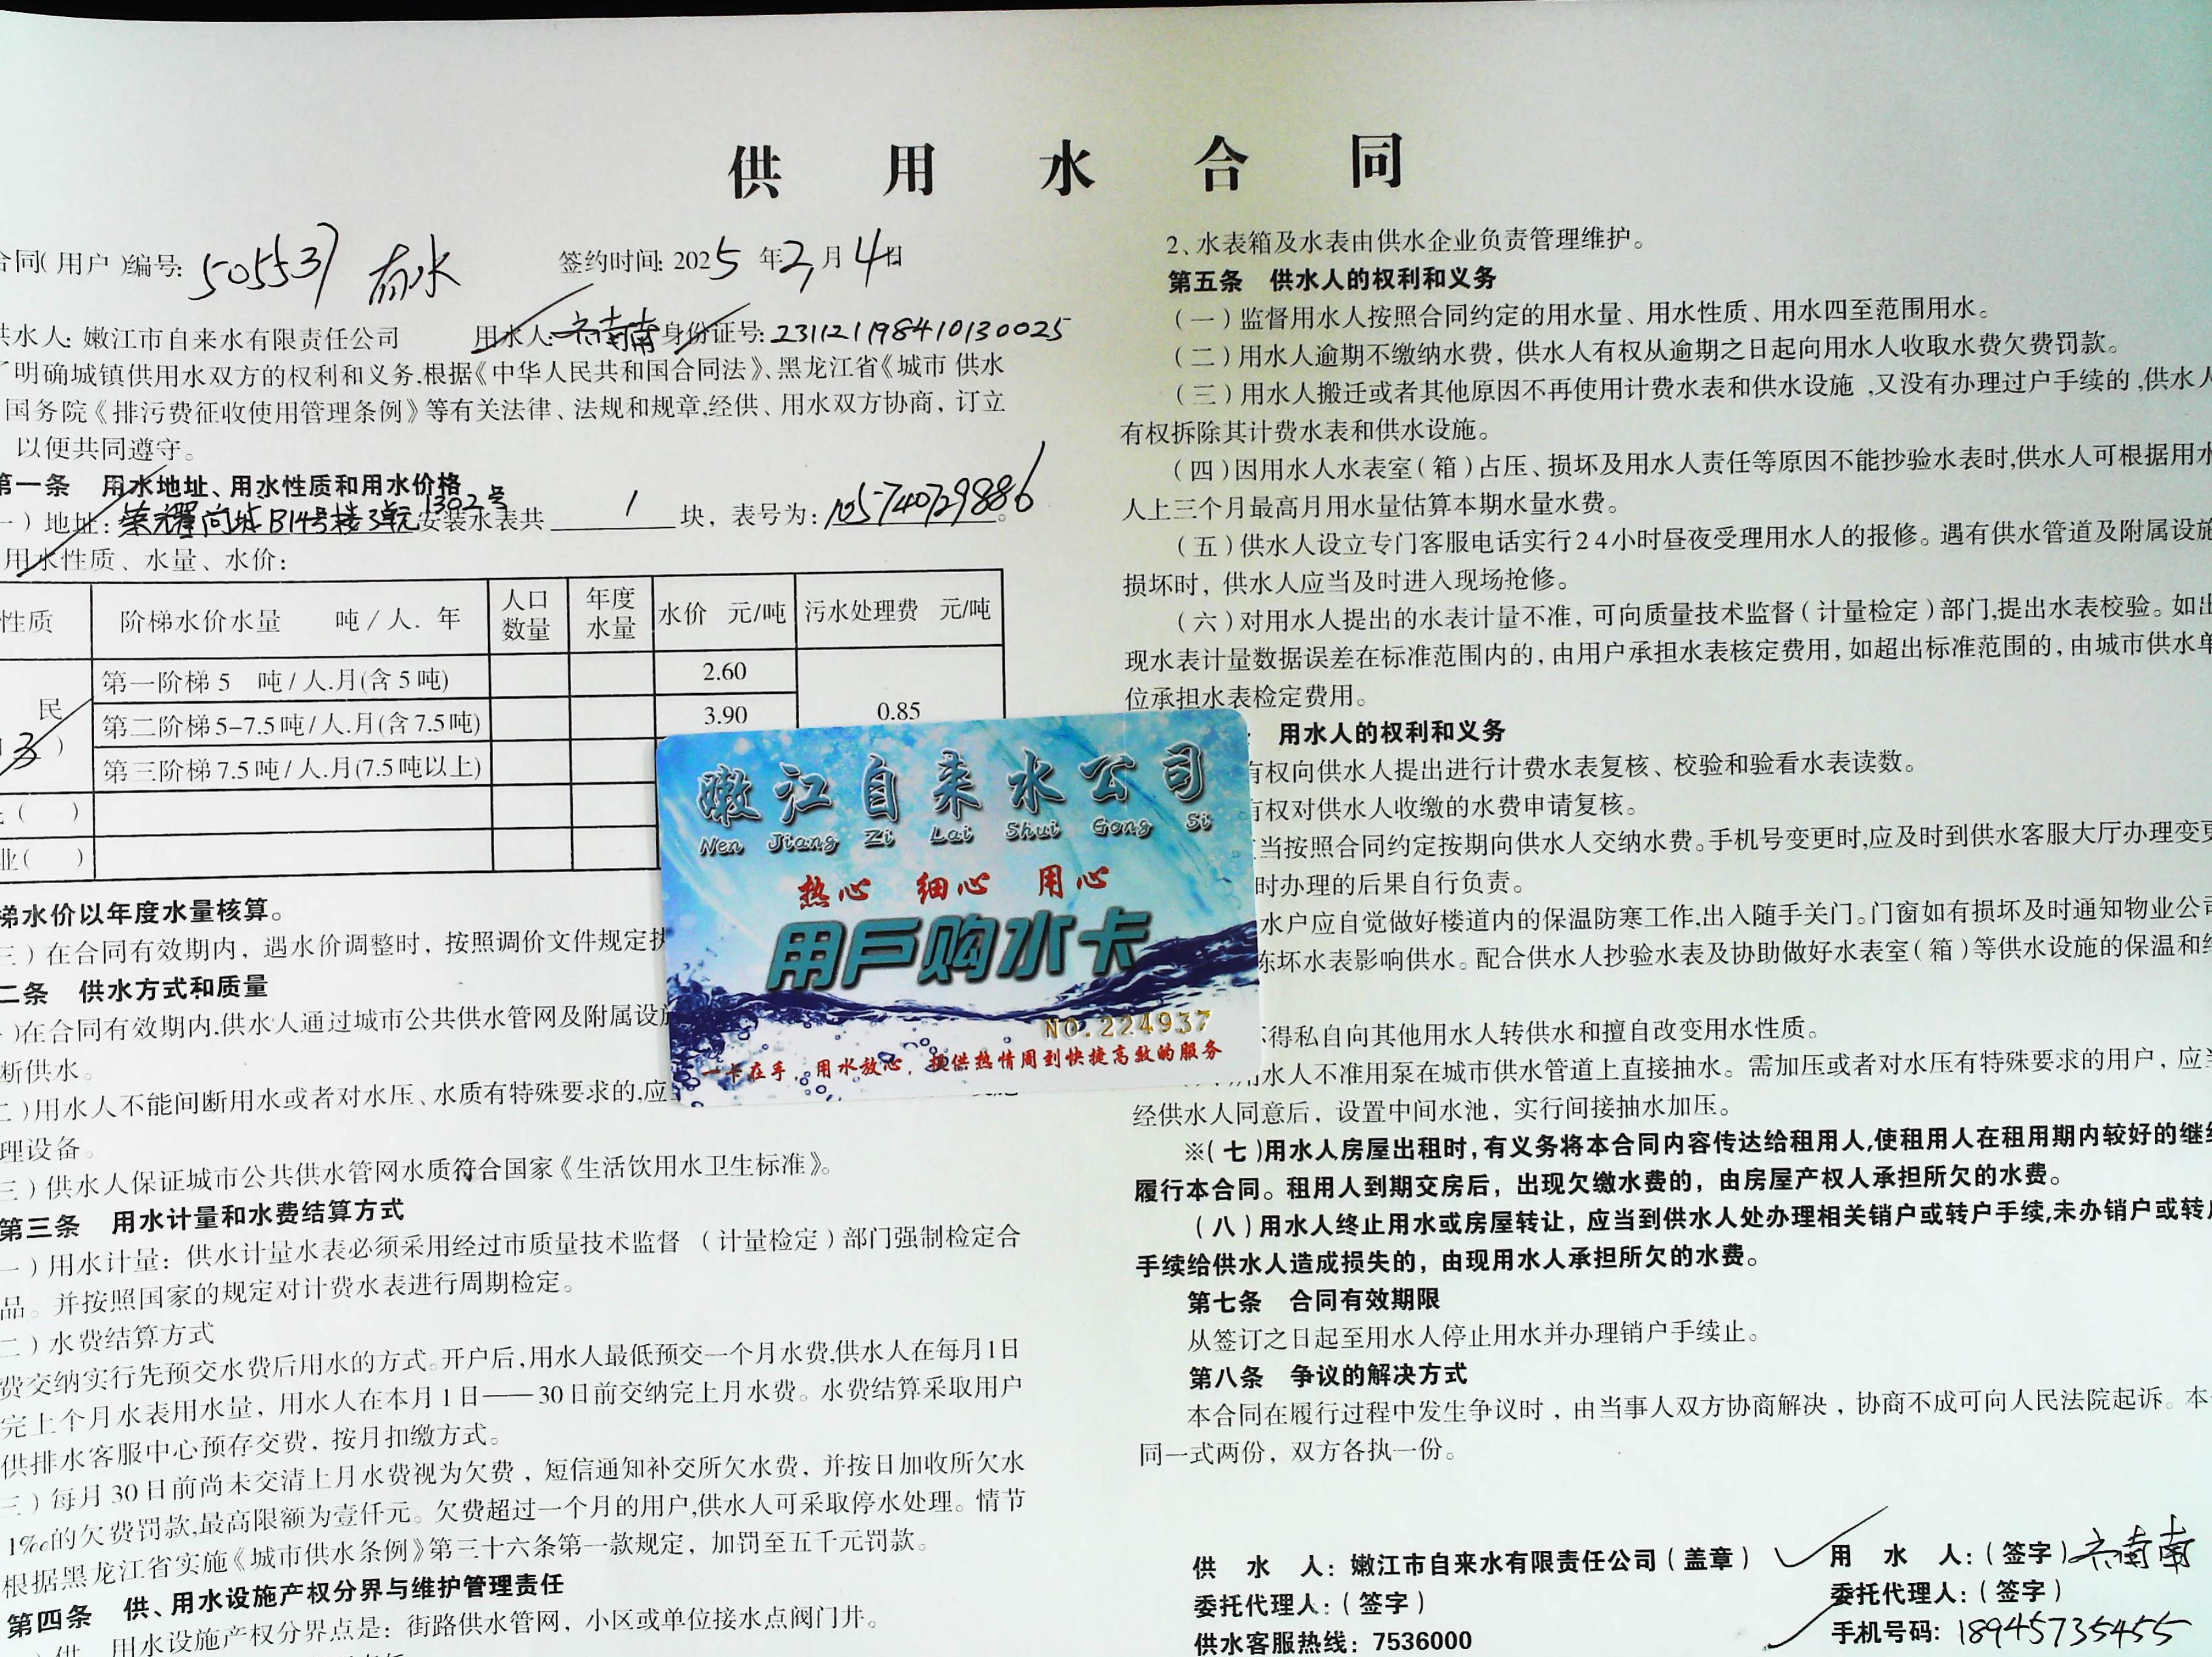 供用水合同
合同(用户)编号: 505537 有水 签约时间: 2025年2月4日
供水人: 嫩江市自来水有限责任公司 用水人: 南南 身份证号: 231121198410130025
明确城镇供用水双方的权利和义务,根据《中华人民共和国合同法》、黑龙江省《城市 供水
国务院《排污费征收使用管理条例》等有关法律、法规和规章,经供、用水双方协商, 订立
以便共同遵守。
第一条 用水地址、用水性质和用水价格
一)地址: 荣耀尚城B14号楼3单元1302号 安装水表共 1 块, 表号为: 105740729886。
用水性质、水量、水价:
性质 阶梯水价水量 吨/人. 年 人口数量 年度水量 水价 元/吨 污水处理费 元/吨
民 3 )
第一阶梯 5 吨/人.月(含 5 吨) 2.60
第二阶梯 5-7.5 吨/人.月(含 7.5 吨) 3.90 0.85
第三阶梯 7.5 吨/人.月(7.5 吨以上)
( )
业( )
梯水价以年度水量核算。
三)在合同有效期内, 遇水价调整时, 按照调价文件规定执
二条 供水方式和质量
)在合同有效期内,供水人通过城市公共供水管网及附属设施
断供水。
二)用水人不能间断用水或者对水压、水质有特殊要求的,应
理设备。
三)供水人保证城市公共供水管网水质符合国家《生活饮用水卫生标准》。
第三条 用水计量和水费结算方式
一)用水计量: 供水计量水表必须采用经过市质量技术监督 (计量检定)部门强制检定合
品。并按照国家的规定对计费水表进行周期检定。
二)水费结算方式
费交纳实行先预交水费后用水的方式。开户后,用水人最低预交一个月水费,供水人在每月1日
完上个月水表用水量, 用水人在本月1日——30日前交纳完上月水费。水费结算采取用户
供排水客服中心预存交费, 按月扣缴方式。
三)每月30日前尚未交清上月水费视为欠费, 短信通知补交所欠水费, 并按日加收所欠水
1‰的欠费罚款,最高限额为壹仟元。欠费超过一个月的用户,供水人可采取停水处理。情节
根据黑龙江省实施《城市供水条例》第三十六条第一款规定, 加罚至五千元罚款。
第四条 供、用水设施产权分界与维护管理责任
)供、用水设施产权分界点是: 街路供水管网, 小区或单位接水点阀门井。
2、水表箱及水表由供水企业负责管理维护。
第五条 供水人的权利和义务
(一)监督用水人按照合同约定的用水量、用水性质、用水四至范围用水。
(二)用水人逾期不缴纳水费, 供水人有权从逾期之日起向用水人收取水费欠费罚款。
(三)用水人搬迁或者其他原因不再使用计费水表和供水设施 ,又没有办理过户手续的 ,供水人
有权拆除其计费水表和供水设施。
(四)因用水人水表室(箱)占压、损坏及用水人责任等原因不能抄验水表时,供水人可根据用水
人上三个月最高月用水量估算本期水量水费。
(五)供水人设立专门客服电话实行24小时昼夜受理用水人的报修。遇有供水管道及附属设施
损坏时, 供水人应当及时进入现场抢修。
(六)对用水人提出的水表计量不准, 可向质量技术监督(计量检定)部门,提出水表校验。如出
现水表计量数据误差在标准范围内的, 由用户承担水表核定费用, 如超出标准范围的, 由城市供水单
位承担水表检定费用。
用水人的权利和义务
有权向供水人提出进行计费水表复核、校验和验看水表读数。
有权对供水人收缴的水费申请复核。
当按照合同约定按期向供水人交纳水费。手机号变更时,应及时到供水客服大厅办理变更
时办理的后果自行负责。
水户应自觉做好楼道内的保温防寒工作,出入随手关门。门窗如有损坏及时通知物业公司
冻坏水表影响供水。配合供水人抄验水表及协助做好水表室(箱)等供水设施的保温和
不得私自向其他用水人转供水和擅自改变用水性质。
用水人不准用泵在城市供水管道上直接抽水。需加压或者对水压有特殊要求的用户, 应当
经供水人同意后, 设置中间水池, 实行间接抽水加压。
※(七)用水人房屋出租时,有义务将本合同内容传达给租用人,使租用人在租用期内较好的继续
履行本合同。租用人到期交房后, 出现欠缴水费的, 由房屋产权人承担所欠的水费。
(八)用水人终止用水或房屋转让, 应当到供水人处办理相关销户或转户手续,未办销户或转户
手续给供水人造成损失的, 由现用水人承担所欠的水费。
第七条 合同有效期限
从签订之日起至用水人停止用水并办理销户手续止。
第八条 争议的解决方式
本合同在履行过程中发生争议时, 由当事人双方协商解决, 协商不成可向人民法院起诉。本
同一式两份, 双方各执一份。
供 水 人: 嫩江市自来水有限责任公司(盖章) 用 水 人: (签字) 南南
委托代理人: (签字) 委托代理人: (签字)
供水客服热线: 7536000 手机号码: 18945735455
嫩江自来水公司
Nen Jiang Zi Lai Shui Gong Si
热心 细心 用心
用户购水卡
NO.224937
一卡在手, 用水放心, 提供热情周到快捷高效的服务